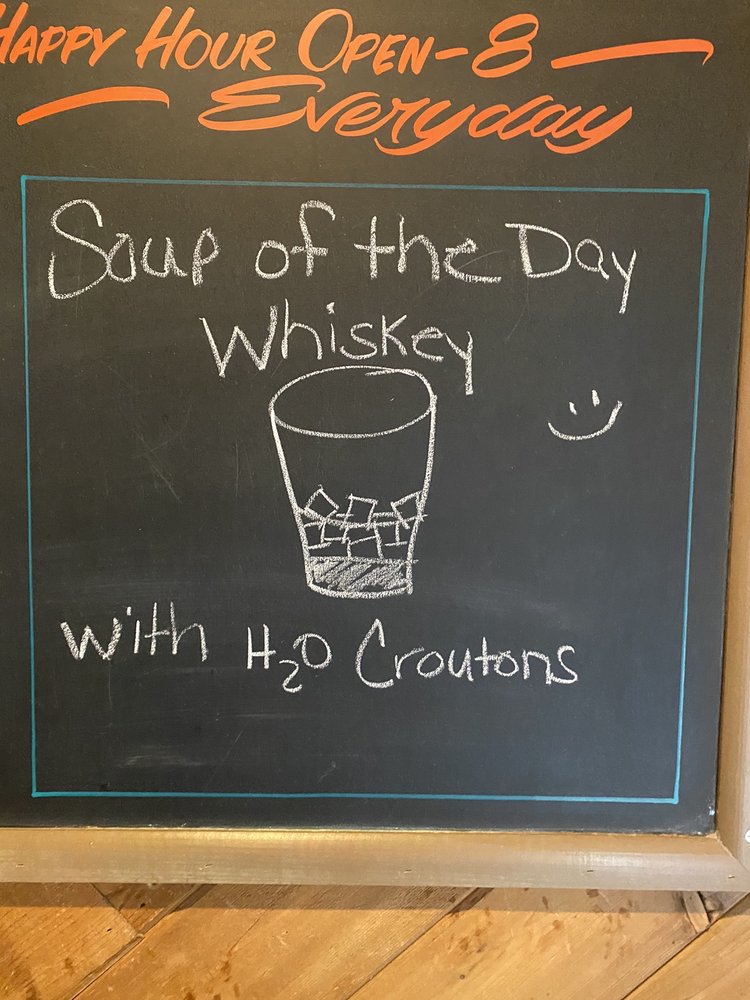 Happy Hour Open-8
Everyday
Soup of the Day
Whiskey
with H₂O Croutons